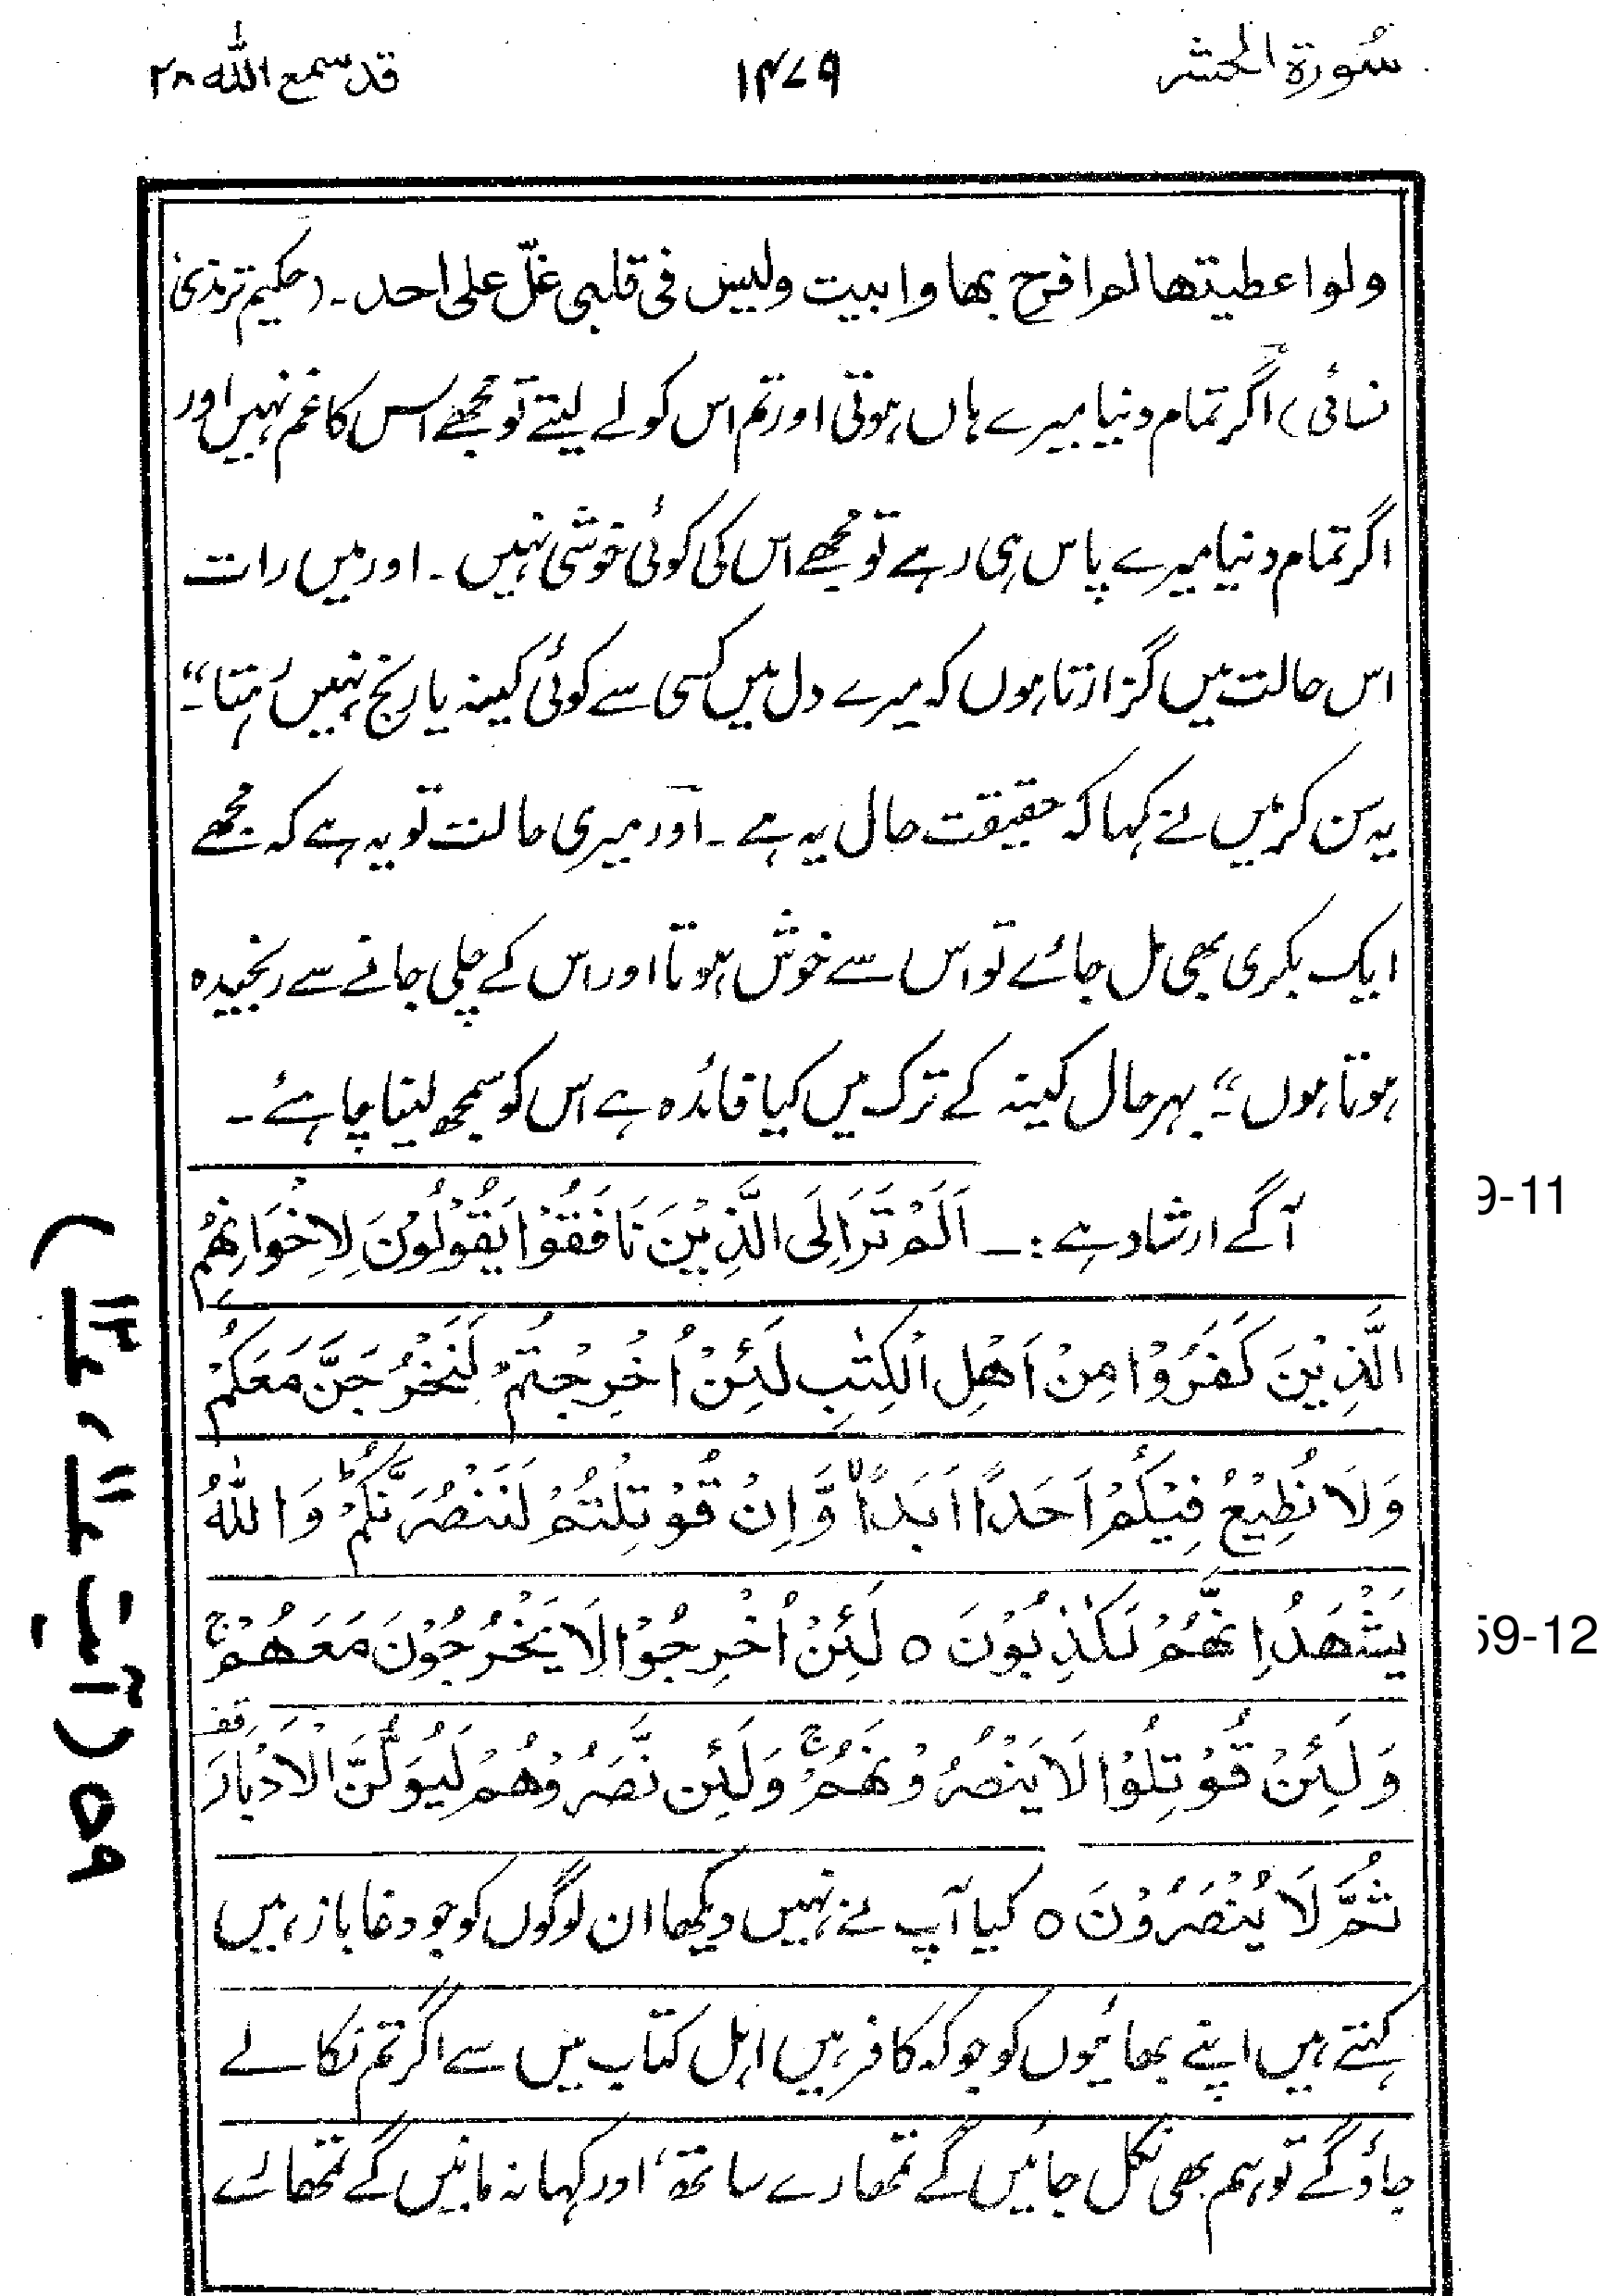 سُورۃ الحشر ۱۴۷۹ قد سمع اللہ ۲۸
ولو اعطیتھا لم افرح بھا وابیت ولیس فی قلبی غلّ علی احد۔ (حکیم ترمذی
نسائی) اگر تمام دنیا میرے ہاں ہوتی اور تم اس کو لے لیتے تو مجھے اس کا غم نہیں اور
اگر تمام دنیا میرے پاس ہی رہے تو مجھے اس کی کوئی خوشی نہیں۔ اور میں رات
اس حالت میں گزارتا ہوں کہ میرے دل میں کسی سے کوئی کینہ یا رنج نہیں رہتا“۔
یہ سن کر میں نے کہا کہ حقیقت حال یہ ہے۔ اور میری حالت تو یہ ہے کہ مجھے
ایک بکری بھی مل جائے تو اس سے خوش ہوتا اور اس کے چلی جانے سے رنجیدہ
ہوتا ہوں“۔ بہرحال کینہ کے ترک میں کیا فائدہ ہے اس کو سمجھ لینا چاہئے۔
آگے ارشاد ہے:۔ اَلَمْ تَرَ اِلَى الَّذِيْنَ نَافَقُوْا يَقُوْلُوْنَ لِاِخْوَانِهِمُ
9-11
الَّذِيْنَ كَفَرُوْا مِنْ اَهْلِ الْكِتٰبِ لَئِنْ اُخْرِجْتُمْ لَنَخْرُجَنَّ مَعَكُمْ
وَلَا نُطِيْعُ فِيْكُمْ اَحَدًا اَبَدًاۙ وَّاِنْ قُوْتِلْتُمْ لَنَنْصُرَنَّكُمْؕ وَاللّٰهُ
يَشْهَدُ اِنَّهُمْ لَكٰذِبُوْنَ ○ لَئِنْ اُخْرِجُوْا لَا يَخْرُجُوْنَ مَعَهُمْۚ
59-12
وَلَئِنْ قُوْتِلُوْا لَا يَنْصُرُوْنَهُمْۚ وَلَئِنْ نَّصَرُوْهُمْ لَيُوَلُّنَّ الْاَدْبَارَ قف
ثُمَّ لَا يُنْصَرُوْنَ ○ کیا آپ نے نہیں دیکھا ان لوگوں کو جو دغا باز ہیں
کہتے ہیں اپنے بھائیوں کو جو کہ کافر ہیں اہل کتاب میں سے اگر تم نکالے
جاؤ گے تو ہم بھی نکل جائیں گے تمھارے ساتھ، اور کہا نہ مانیں گے تمھارے
۵۹ (آیت ۱۱، ۱۲)